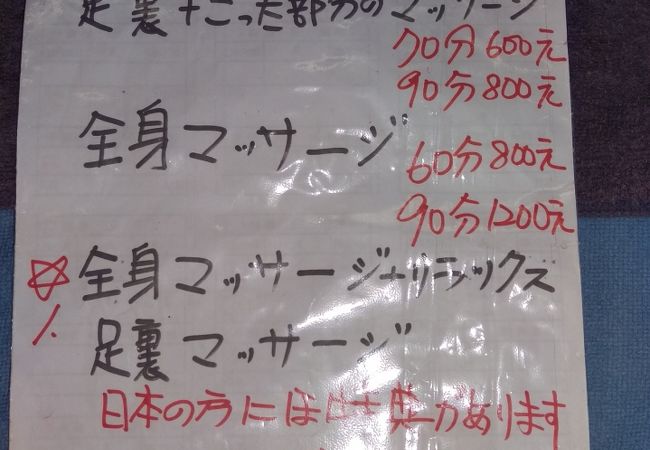 足裏+こった部分のマッサージ
70分600元
90分800元
全身マッサージ
60分800元
90分1200元
☆全身マッサージ+リニックス
足裏マッサージ
日本の方には 典があります